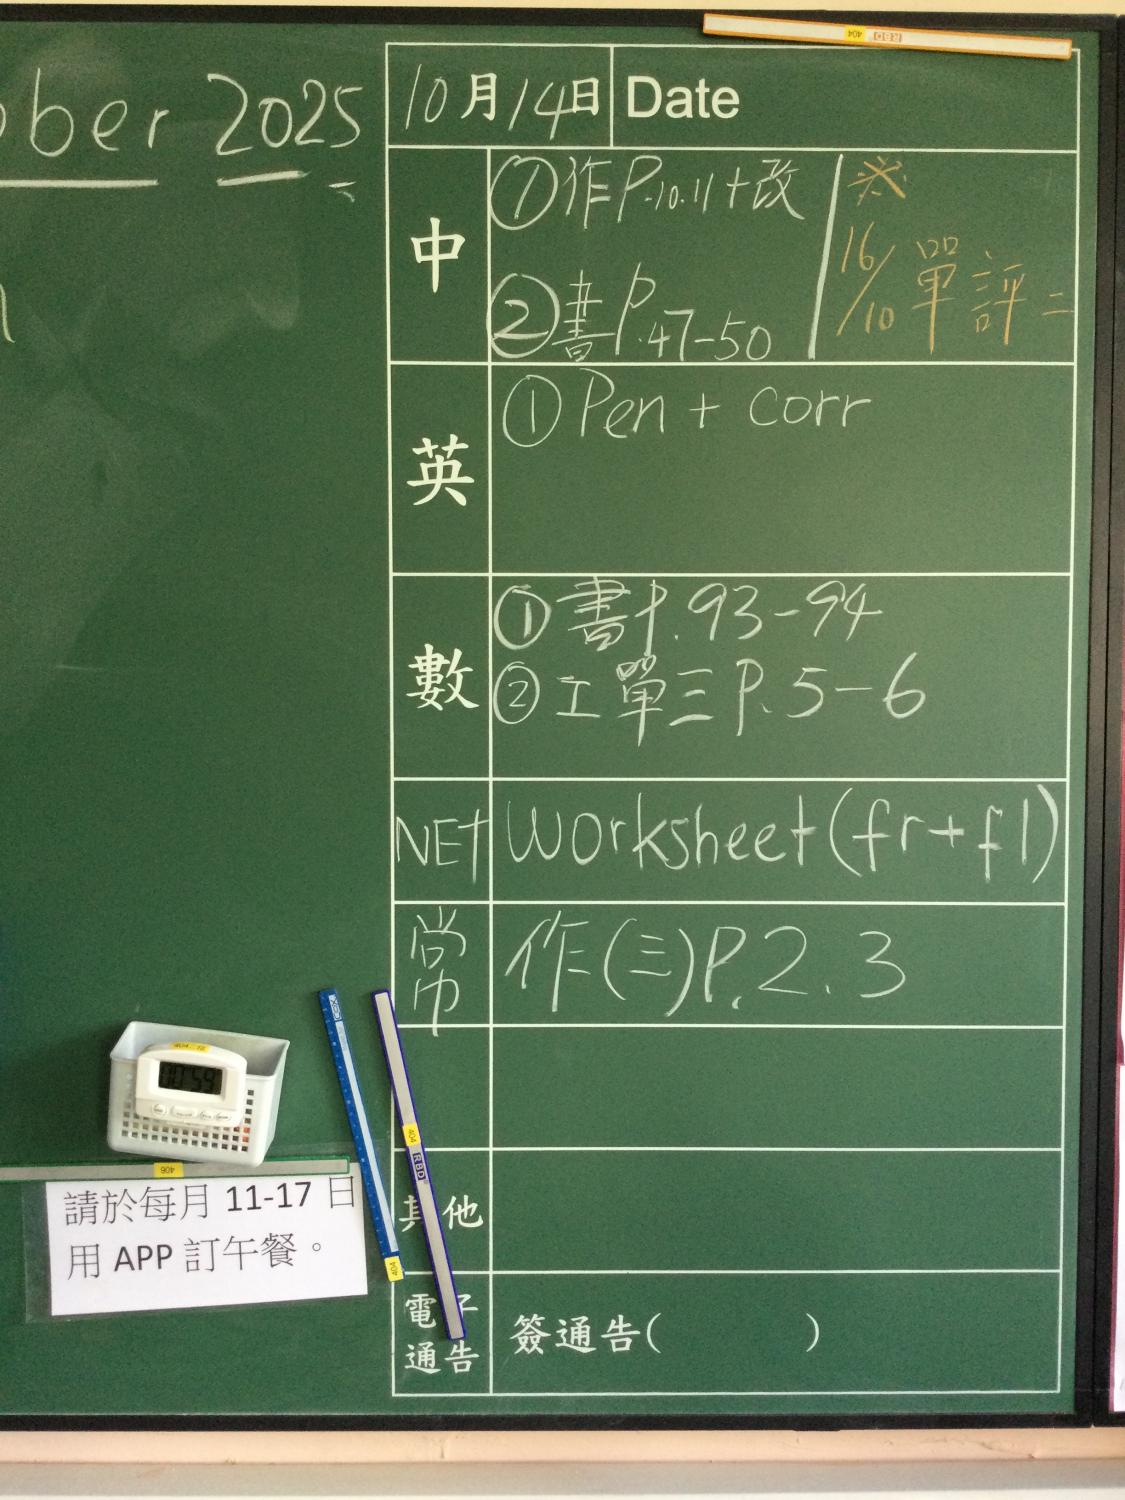 ober 2025
10月14日 Date
中
①作P.10.11+改
②書P.47-50
※
16/10 單評二
英
①Pen + corr
數
①書P.93-94
②工單三P.5-6
NET
Worksheet(fr+fl)
常
作(三)P.2.3
其他
電子
通告
簽通告( )
00:59
請於每月 11-17 日
用 APP 訂午餐。
404
RBD
404
RBD
404
406